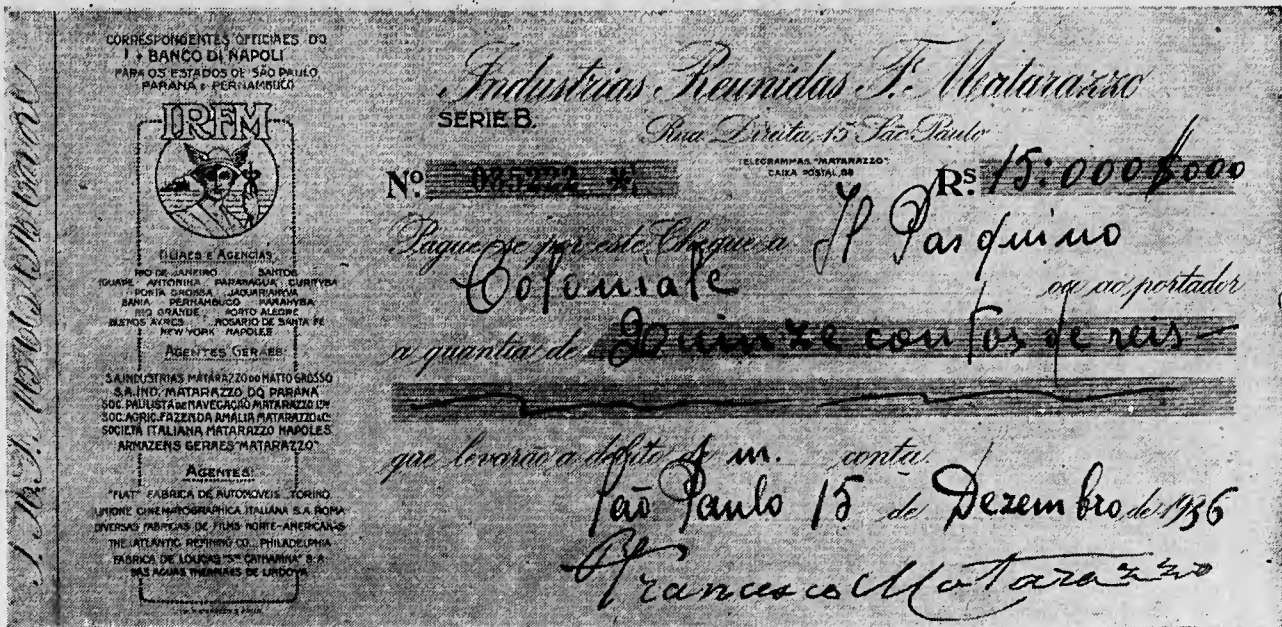 CORRESPONDENTES OFFICIAES DO
BANCO DI NAPOLI
PARA OS ESTADOS DE SÃO PAULO,
PARANÁ E PERNAMBUCO
IRFM
FILIAES E AGENCIAS
RIO DE JANEIRO SANTOS
IGUAPE ANTONINA PARANAGUÁ CURITYBA
PONTA GROSSA JAGUARIAHYVA
BAHIA PERNAMBUCO PARAHYBA
RIO GRANDE PORTO ALEGRE
BUENOS AYRES ROSARIO DE SANTA FÉ
NEW YORK NAPOLES
AGENTES GERAES:
S.A. INDUSTRIAS MATARAZZO DO MATTO GROSSO
S.A. IND. MATARAZZO DO PARANÁ
SOC. PAULISTA DE NAVEGAÇÃO MATARAZZO LDA
SOC. AGRIC. FAZENDA AMALIA MATARAZZO
SOCIETÀ ITALIANA MATARAZZO NAPOLES
ARMAZENS GERAES "MATARAZZO"
AGENTES:
"FIAT" FABRICA DE AUTOMOVEIS TORINO
UNIONE CINEMATOGRAPHICA ITALIANA S.A. ROMA
DIVERSAS FABRICAS DE FILMS NORTE-AMERICANAS
THE ATLANTIC REFINING CO. PHILADELPHIA
FABRICA DE LOUÇAS "STA CATHARINA" S.A.
DAS AGUAS THERMAES DE LINDOYA
Industrias Reunidas F. Matarazzo
SERIE B.
Rua Direita, 15 São Paulo
TELEGRAMMAS "MATARAZZO"
CAIXA POSTAL, 86
Nº 035222 Rs. 15:000$000
Pague-se por este Cheque a Il Pasquino
Coloniale ou ao portador
a quantia de Quinze contos de reis
que levarão a debito d m. conta.
São Paulo 15 de Dezembro de 1936
Francesco Matarazzo